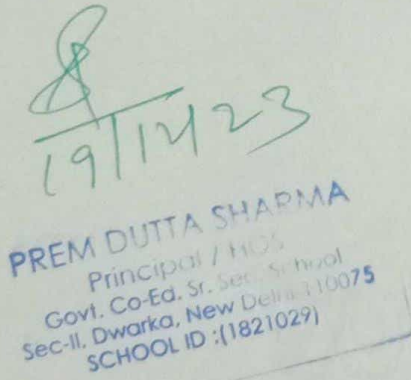 19/12/23
PREM DUTTA SHARMA
Principal / HOS
Govt. Co-Ed. Sr. Sec. School
Sec-II, Dwarka, New Delhi-110075
SCHOOL ID :(1821029)